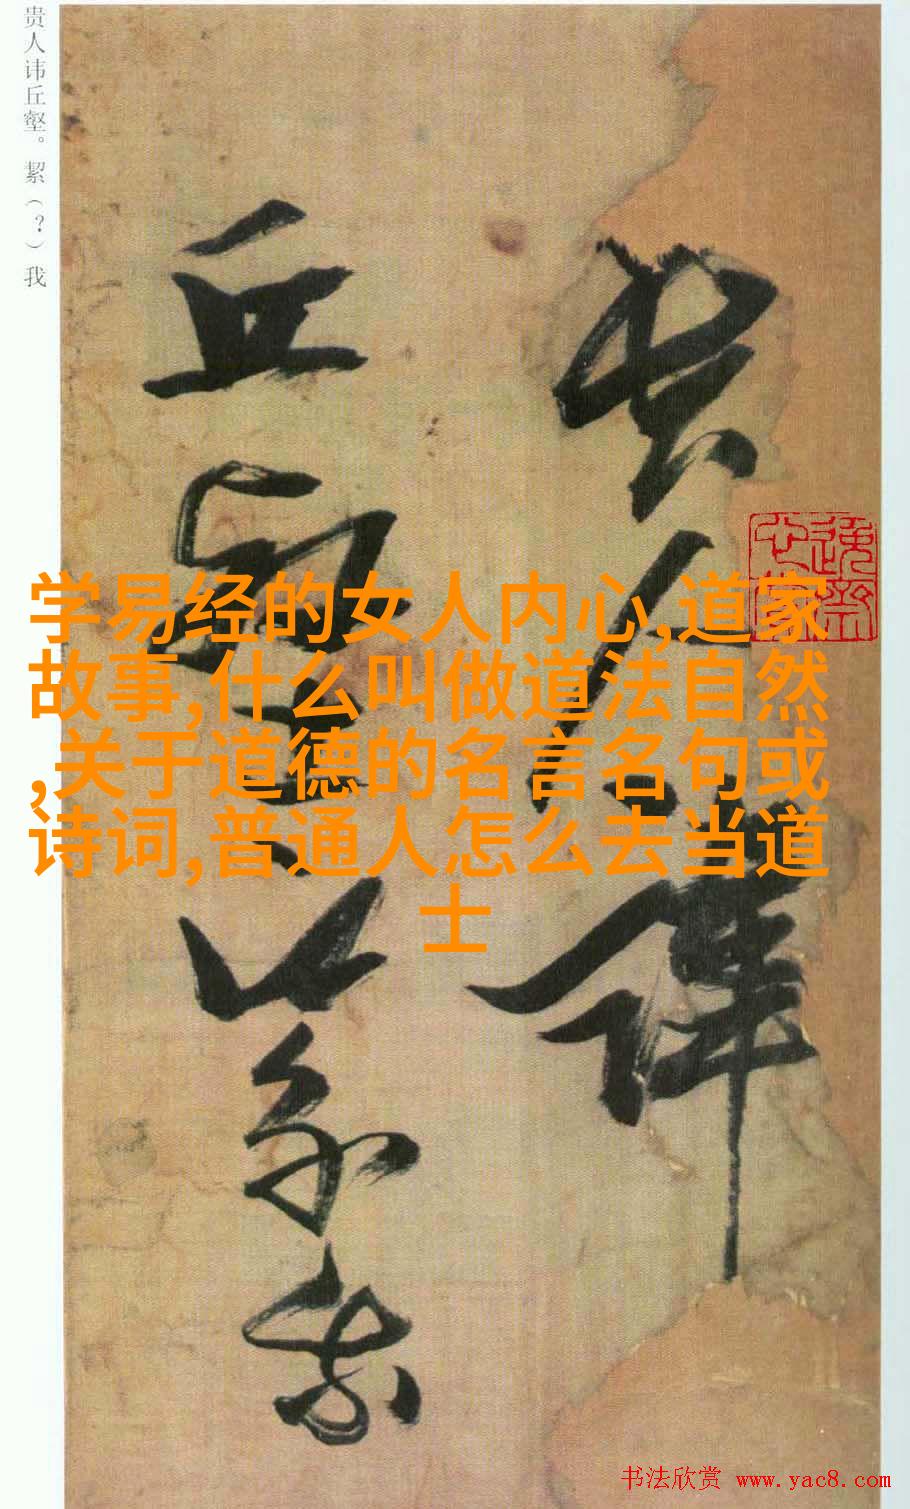 贵人讳丘壑。絜（？）我
贵人讳
丘壑絜我
学易经的女人内心,道家
故事,什么叫做道法自然
,关于道德的名言名句或
诗词,普通人怎么去当道
士
书法欣赏 www.yac8.com